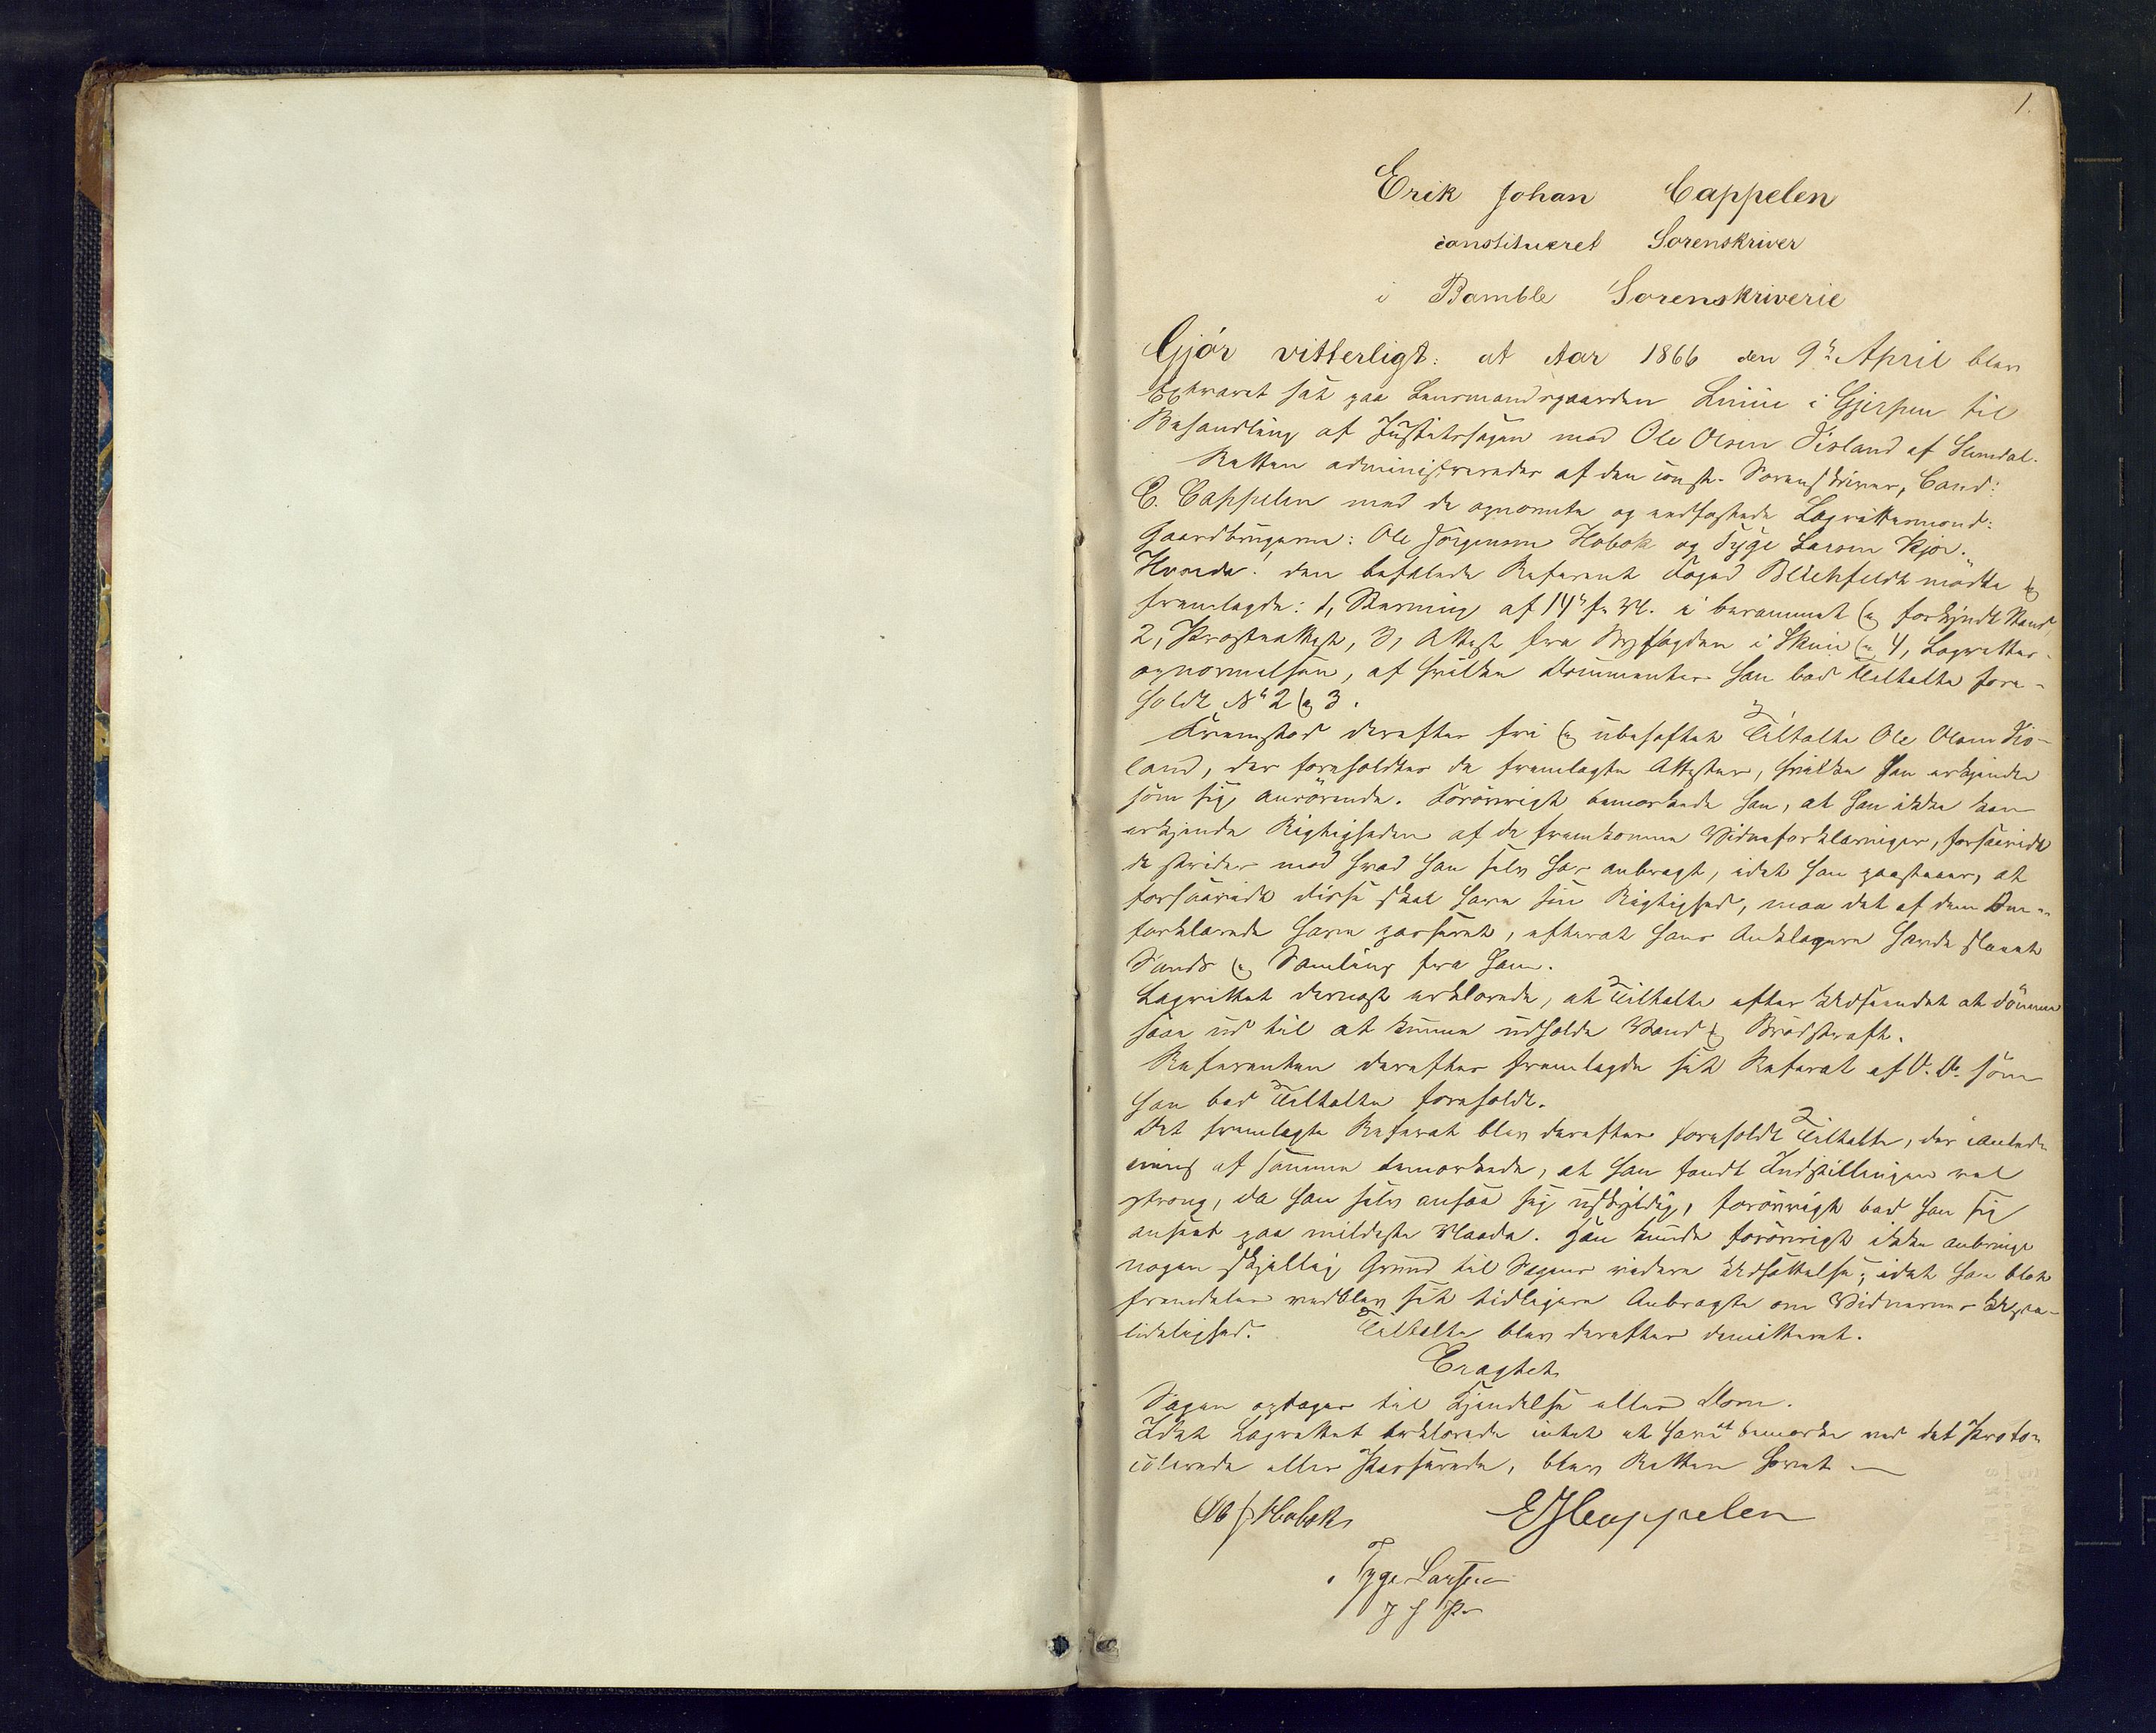 1.
Erik Johan Cappelen
constitueret Sorenskriver
i Bamble Sorenskriverie
Gjør vitterligt: at Aar 1866 den 9de April blev
Extraret sat paa Lensmandsgaarden Limie i Gjerpen til
Behandling af Justitssagen mod Ole Olsen Tisland af Slemdal.
Retten administreredes af den const. Sorenskriver, Cand:
E. Cappelen med de opnævnte og eedfæstede Lagrettesmænd:
Gaardbrugerne: Ole Jörgensen Hobæk og Tyge Larsen Kjær.
Hvorda! den befalede Referent Foged Blichfeldt mödte og
fremlagde: 1, Stævning af 14de f. M. i berammet og forkyndt Stand,
2, Præsteattest, 3, Attest fra Byfogden i Skien og 4, Lagrettes-
opnævnelsen, af hvilke Documenter han bad Tiltalte fore-
holdt No 2 og 3.
Fremstod derefter fri og ubehæftet Tiltalte Ole Olsen Tis-
land, der foreholdtes de fremlagte Attester, hvilke han erkjendte
som sig anrörende. Forövrigt bemærkede han, at han ikke kan
erkjende Rigtigheden af de fremkomne Vidneforklaringer, forsaavidt
de strider mod hvad han selv har anbragt, idet han paastaaer, at
forsaavidt disse skal have sin Rigtighed, maa det af dem
forklarede være passeret, efterat hans Anklagere havde slaaet
Sands og Samling fra ham.
Lagrettet dernæst erklærede, at Tiltalte efter Udseendet at dömme
saa ud til at kunne udholde Vand og Brödstraff.
Referenten derefter fremlagde sit Referat af D. D. som
han bad Tiltalte foreholdt.
Det fremlagte Referat blev derefter foreholdt Tiltalte, der i Anled-
ning af samme bemærkede, at han fandt Indstillingen vel
streng, da han selv ansaa sig uskyldig, forövrigt bad han sig
anseet paa mildeste Maade. Han kunde forövrigt ikke anbringe
nogen skjellig Grund til Sagens videre Udsættelse, idet han blot
fremdeles vedblev sit tidligere Anbragte om Vidnernes Upaa-
lidelighed. Tiltalte blev derefter demitteret.
Eragtet
Sagen optages til Kjendelse eller Dom.
Idet Lagrettet erklærede intet at have at bemærke ved det Proto-
collerede eller Passerede, blev Retten hævet
Ole J Hobæk EJCappelen
Tyge Larsen